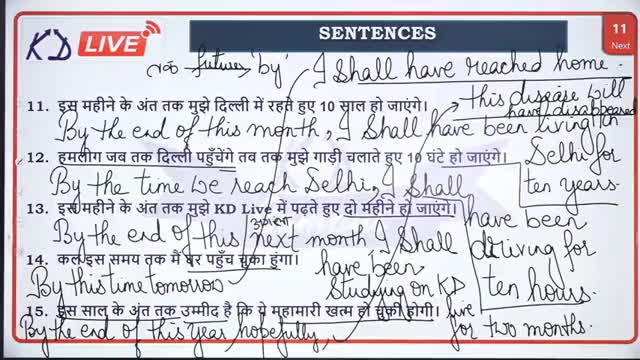 KD LIVE
SENTENCES
11
Next
तक future 'by' I Shall have reached home.
this disease will have disappeared
11. इस महीने के अंत तक मुझे दिल्ली में रहते हुए 10 साल हो जाएंगे।
By the end of this month, I Shall have been living in Delhi for ten years.
12. हमलोग जब तक दिल्ली पहुँचेंगे तब तक मुझे गाड़ी चलाते हुए 10 घंटे हो जाएंगे।
By the time we reach Delhi, I shall have been driving for ten hours.
13. इस महीने के अंत तक मुझे KD Live में पढ़ते हुए दो महीने हो जाएंगे।
अगला
By the end of this next month I Shall have been Studying on KD live for two months.
14. कल इस समय तक मैं घर पहुँच चुका हूंगा।
By this time tomorrow
15. इस साल के अंत तक उम्मीद है कि ये महामारी खत्म हो चुकी होगी।
By the end of this year hopefully,